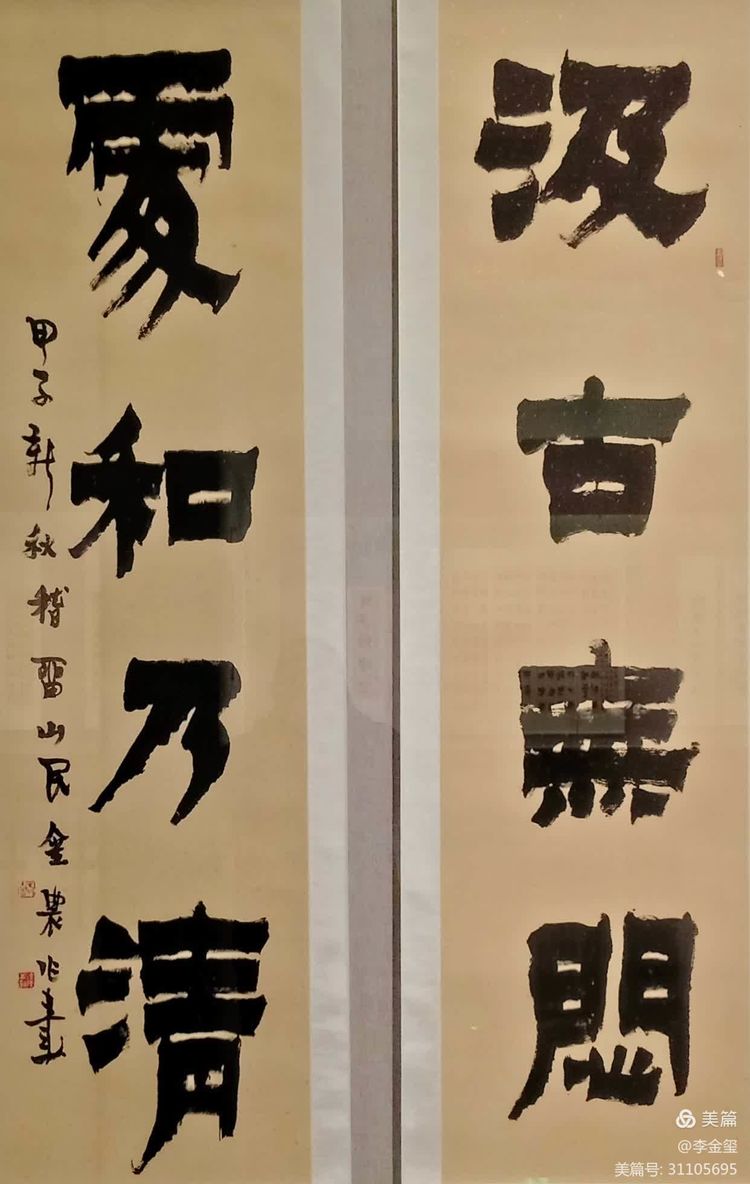 汲古無悶
處和乃清
甲子新秋稽畱山民金農作書
美篇
@李金玺
美篇号: 31105695